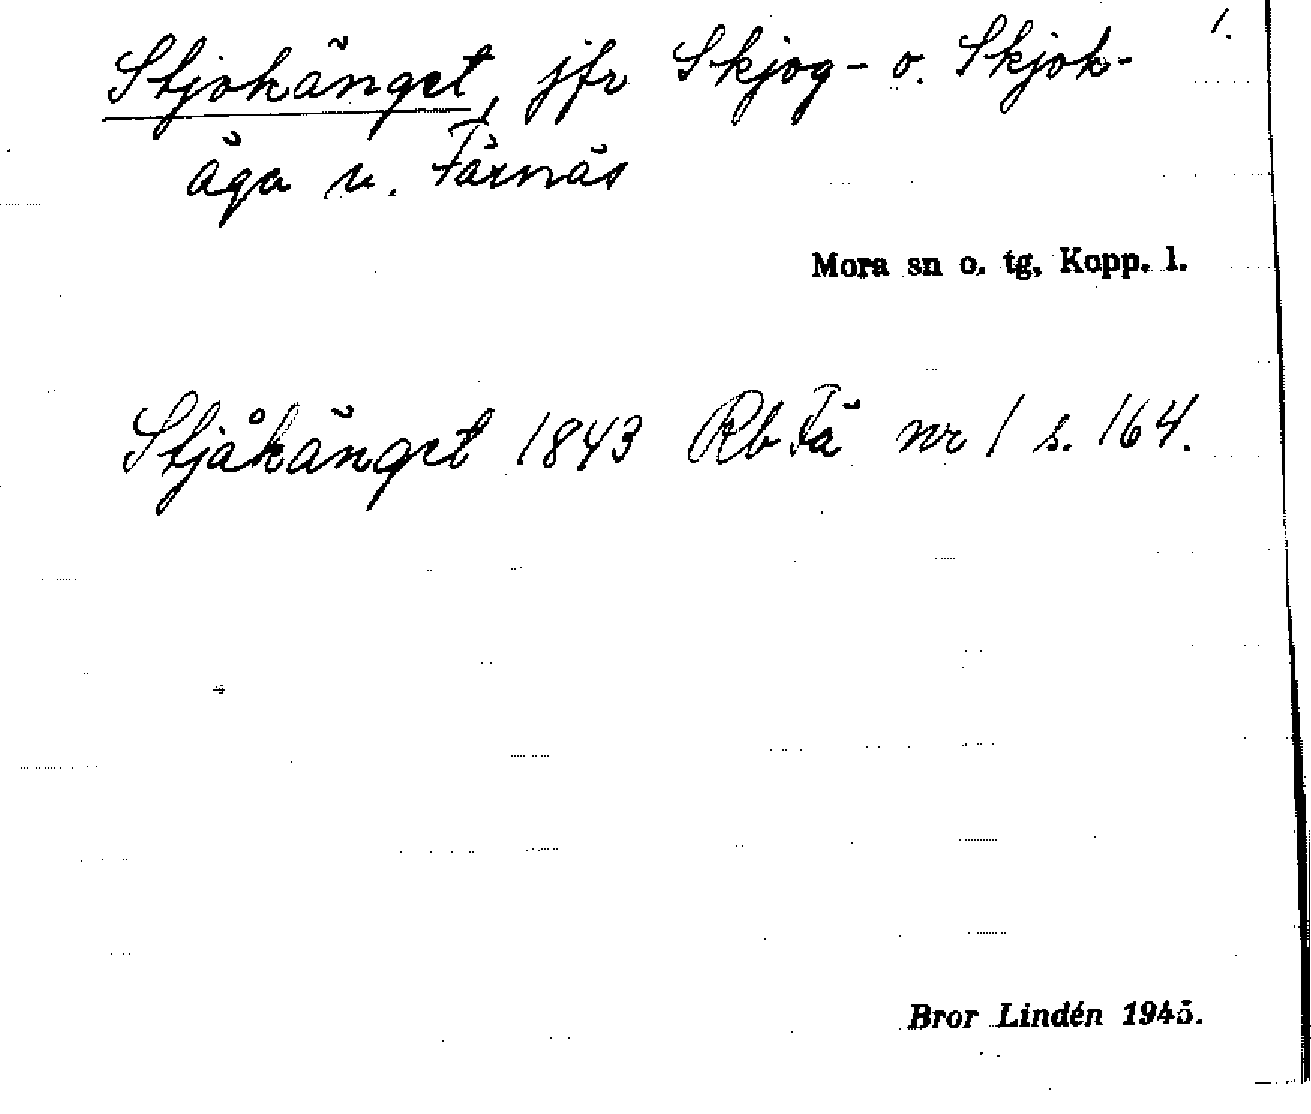 1.
Stjokänget, jfr Skjog- o. Skjok-
äga u. Färnäs
Mora sn o. tg, Kopp. l.
Stjåkänget 1843 Rb Fä nr 1 s. 164.
Bror Lindén 1945.